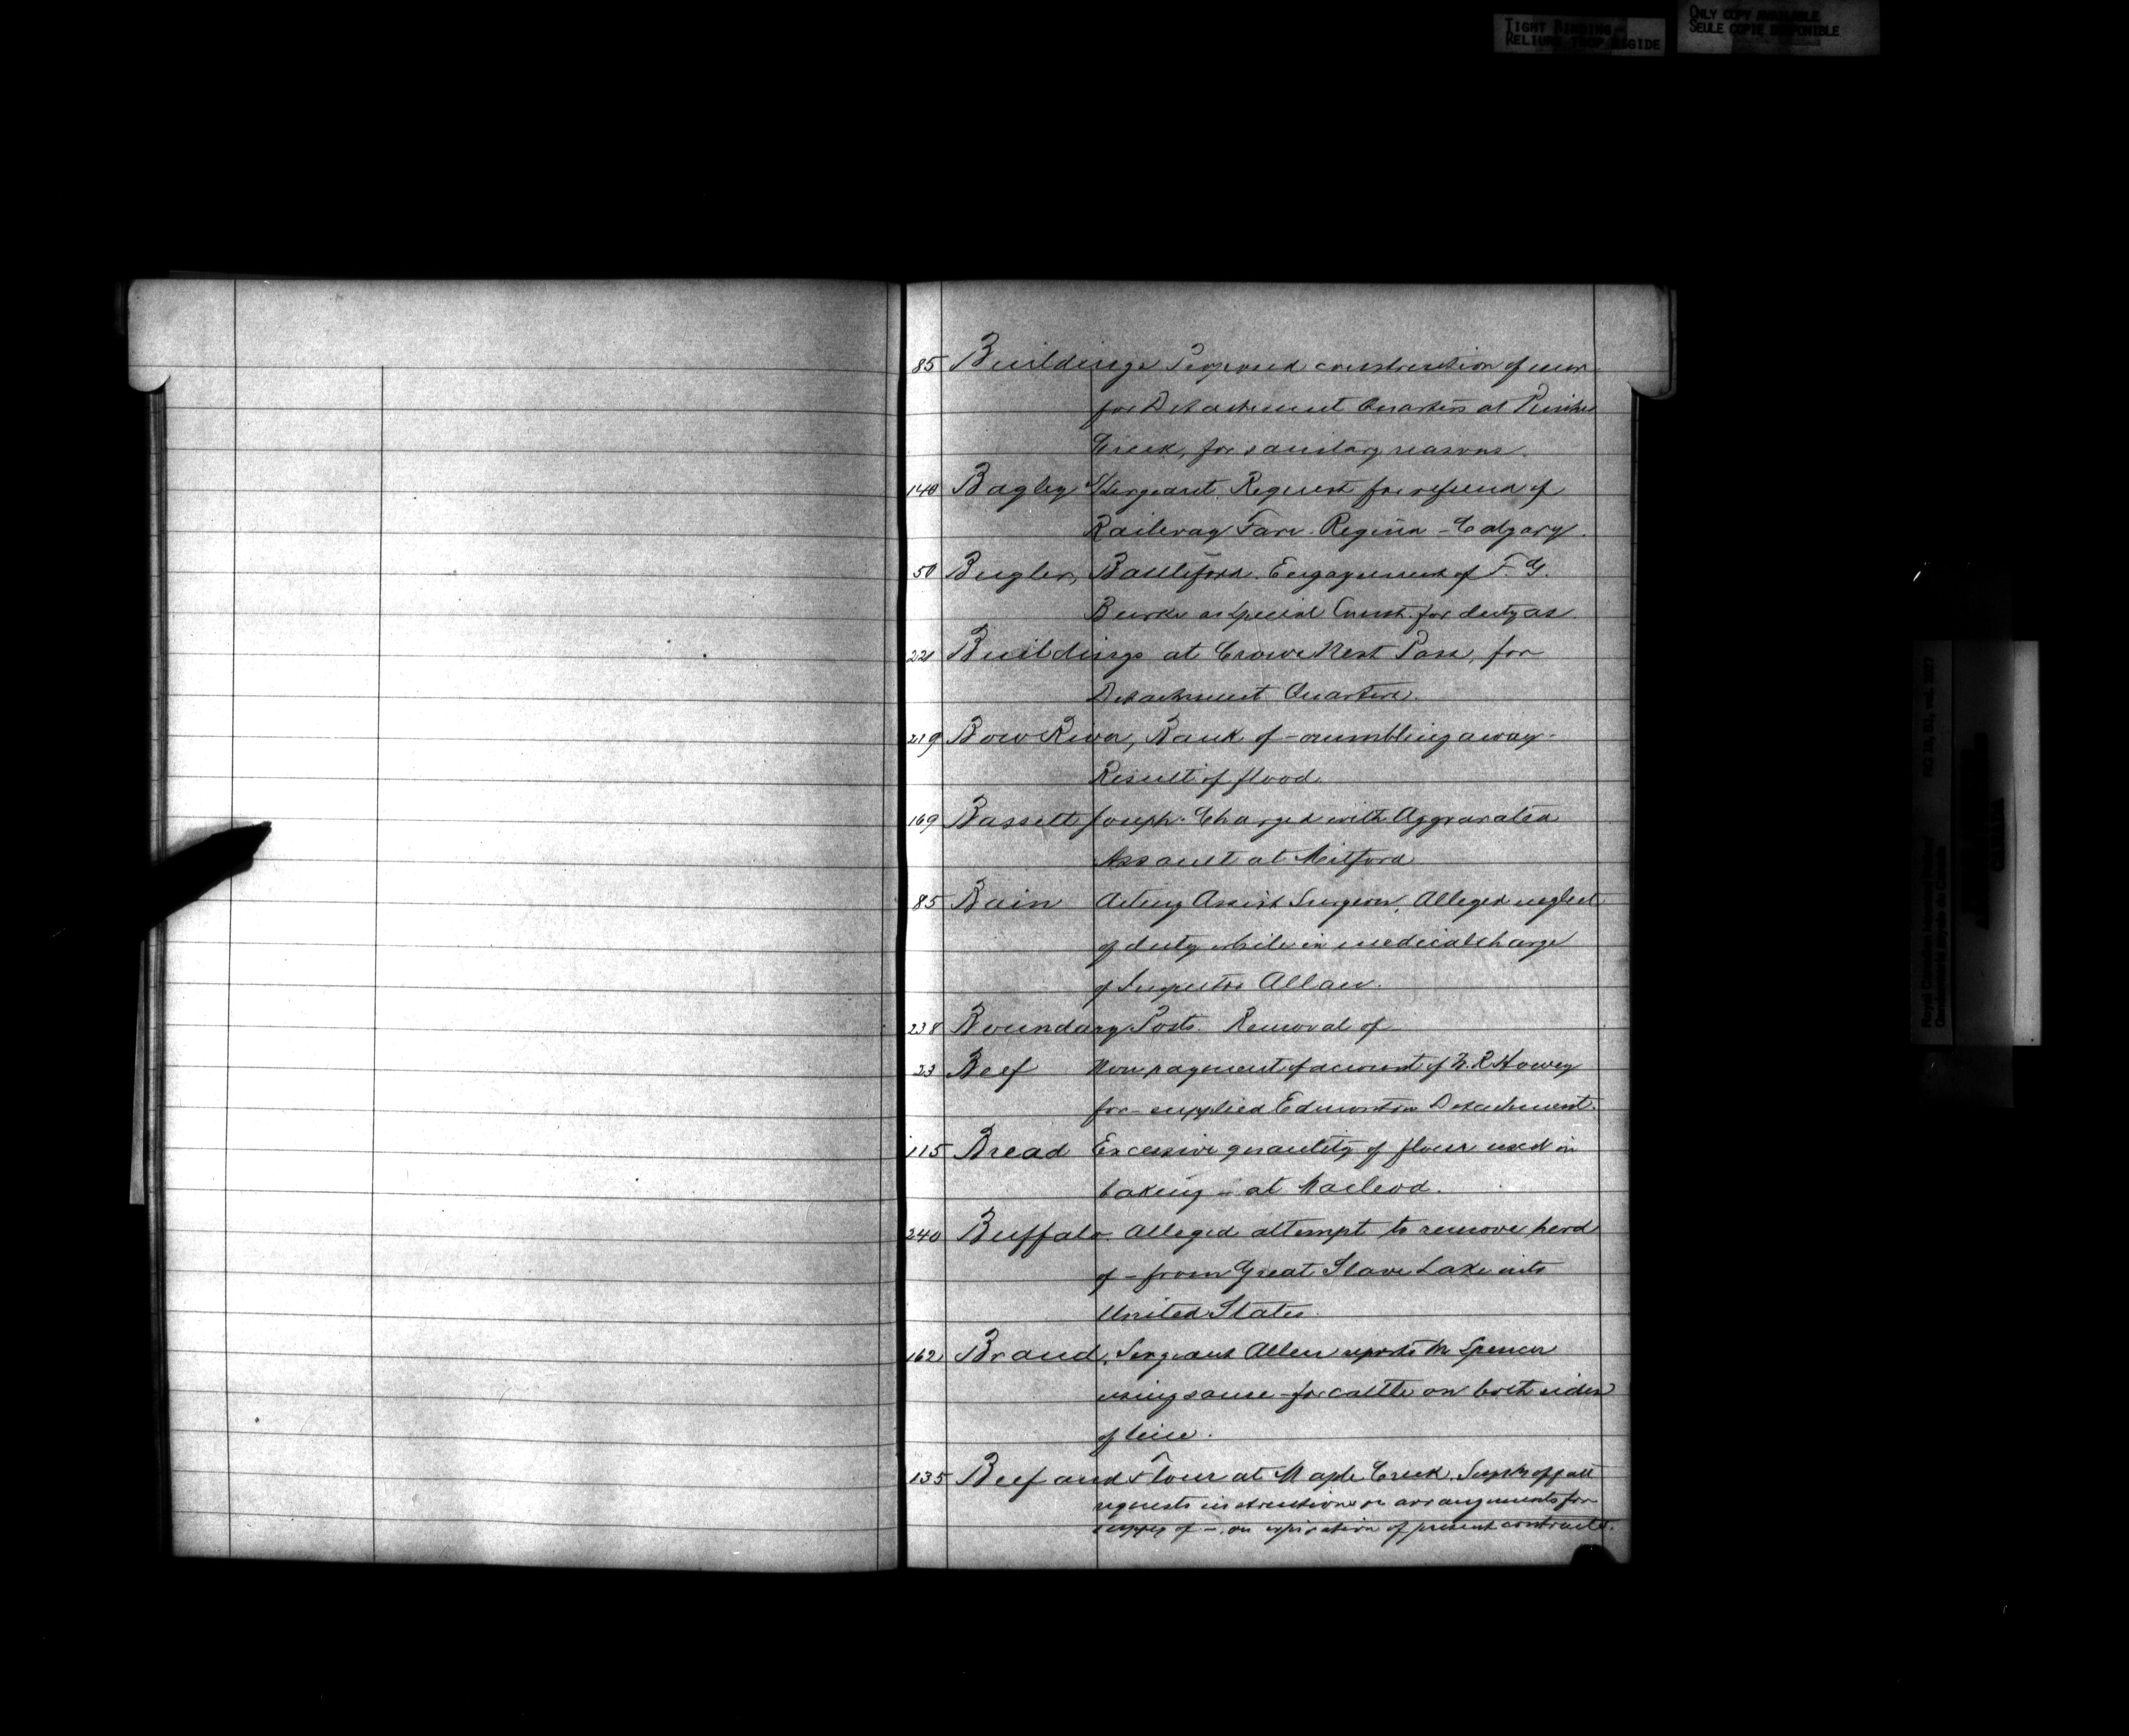 TIGHT BINDING
RELIURE TROP RIGIDE
ONLY COPY AVAILABLE
SEULE COPIE DISPONIBLE
85 Buildings Proposed construction of new
for Detachment Quarters at Pincher
Creek, for sanitary reasons.
140 Bagley S/Sergeant. Request for refund of
Railway Fare. Regina - Calgary.
50 Bugler, Battleford. Engagement of F. G.
Burke as Special Const. for duty as
221 Buildings at Crows Nest Pass, for
Detachment Quarters.
219 Bow River, Bank of - crumbling away.
Result of flood.
169 Bassett Joseph. Charged with Aggravated
Assault at Mitford
85 Bain Acting Assist Surgeon, Alleged neglect
of duty while in medical charge
of Inspector Allan.
238 Boundary Posts Removal of
23 Beef Non payment of account of R Howey
for - supplied Edmonton Detachment.
115 Bread Excessive quantity of flour used in
baking - at Macleod.
240 Buffalo Alleged attempt to remove herd
of - from Great Slave Lake into
United States.
162 Brand, Sergeant Allen reports Mr Spencer
using same - for cattle on both sides
of line.
135 Beef and Flour at Maple Creek.
requests instructions re arrangements for
supply of - on expiration of present contracts.
RG 18, B1, vol.
Royal Canadian Mounted Police
Gendarmerie royale du Canada
CANADA